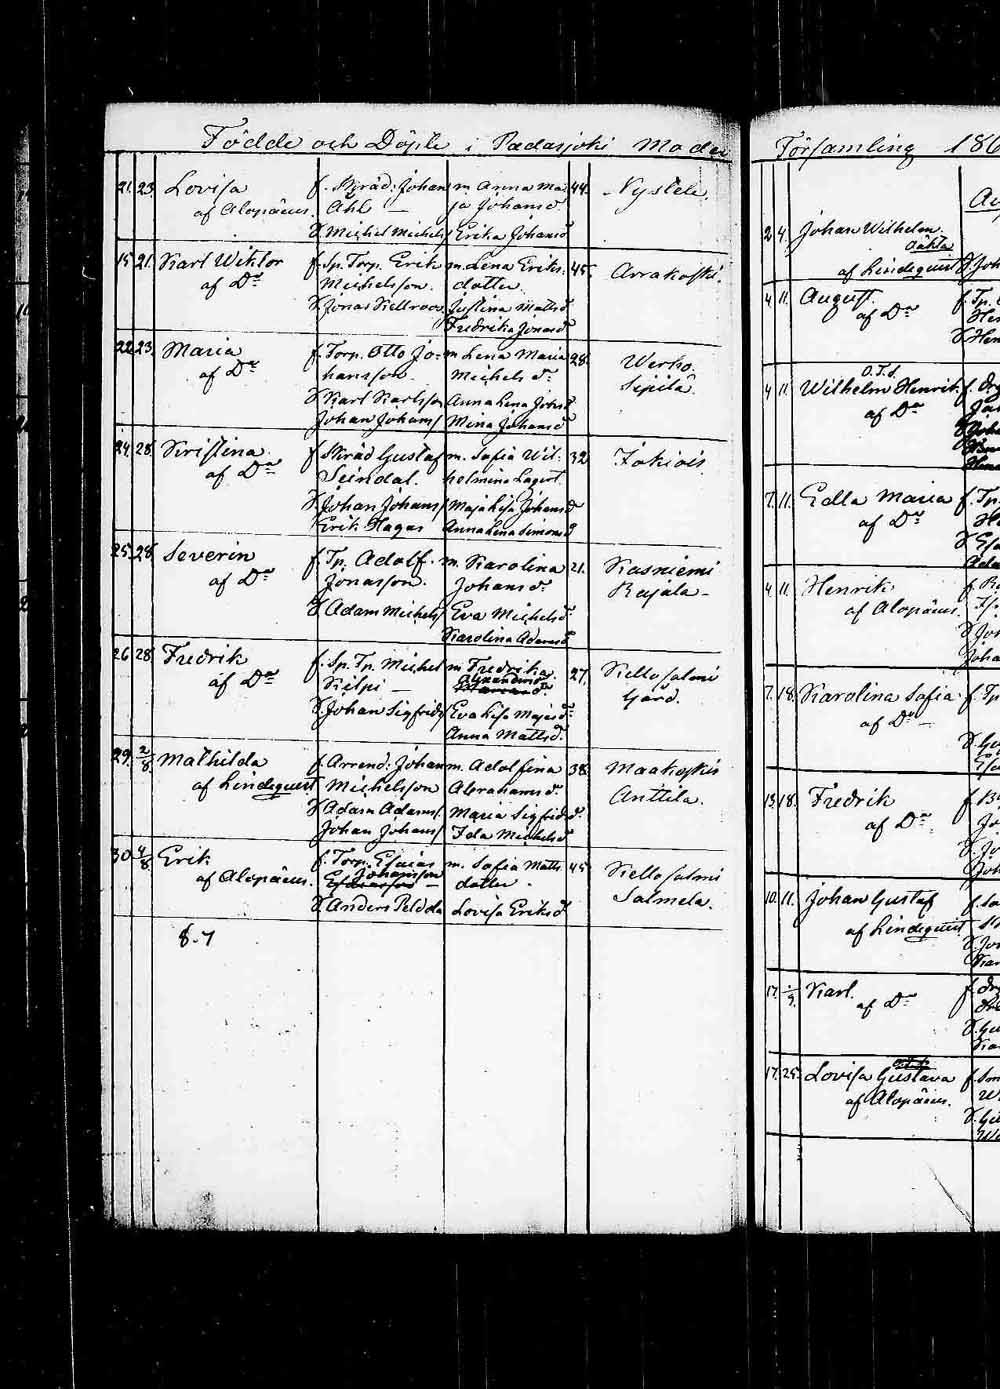 Födde och Döpte i Padasjoki Moder
21. 23. Lovisa f. Skräd: Johan m. Anna Ma 44. Nystele.
af Alopæus. Ahl — ja Johansd
Michel Michels/ Erika Johansd
15. 21. Karl Wiktor f. Sp. Torp. Erik m. Lena Eriks: 45. Arrakoski.
af Do Michelsson. dotter
Jonas Kellroos Justina Mattsd
Fredrika Jonasd
22. 23. Maria f. Torp. Otto Jo: m Lena Maria 28. Werho
af Do hansson. Michels d. Sepilä
Karl Karlsson Anna Lena Johsd
Johan Johans/ Mina Johansd
24. 28. Kristina f Skräd Gustaf m. Sofia Wil: 32 Jokiois
af Do Seindal. helmina Lagert.
Johan Johans/ Maja Lisa Johansd
Erik Hagas Anna Lena Simonsd
25. 28. Severin f. Tp. Adolf. m. Karolina 21. Kasniemi
af Do Jonasson. Johansd. Rajala—
Adam Michels/ Eva Michelsd
Karolina Adamsd
26. 28. Fredrik f. Sp. Tp. Michel m Fredrika 27. Kellosalmi
af Do Kilpi — Alexandersd Gård.
Johan Sigfrids/ Eva Lisa Majasd.
Anna Mattsd.
29. 2/8. Mathilda f. Arrend: Johan m. Adolfina 38. Maakeskis
af Lindequist Michelsson Abrahamsd. Anttila.
Adam Adams/. Maria Sigfridsd.
Johan Johans/ Ida Michelsd
30. 4/8 Erik f. Torp. Esaias m. Sofia Matts 45 Kellosalmi
af Alopæus. Johansson dotter. Salmela.
Anders Peldda Lovisa Eriksd
8. 7
Församling 186
2 4. Johan Wilhelm.
oäkta
af Lindequist
4 11. August. f. Tp.
af Do Hen
Hen
O.T.d.
4 11. Wilhelm Henrik. f.
af Do
7. 11. Edla Maria f. Tp.
af Do
4 11. Henrik f.
af Alopæus.
Joh
Joha
7. 18. Karolina Sofia. f. Tp
af Do —
13. 18. Fredrik f
af Do Jo
Joh
10. 11. Johan Gustaf f.
af Lindequist
Kar
17. 1/9. Karl. f.
af Do
17. 25. Lovisa Gustava f.
af Alopæus.